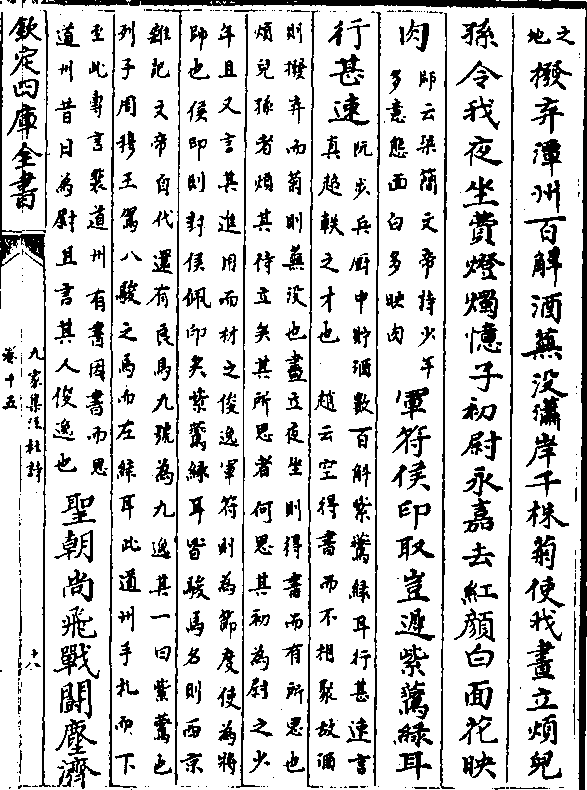 之
地
撥弃潭州百斛酒蕪没瀟岸千株菊使我晝立煩兒
孫令我夜坐費燈燭憶子初尉永嘉去紅顔白面花映
肉
師云梁簡文帝詩少年
多意態面白多映肉
軍符侯印取豈遲紫鷰緑耳
行甚速
阮步兵厨中貯酒數百斛紫鷰緑耳行甚速言
真超軼之才也 趙云空得書而不相聚故酒
則撥弃而菊則蕪没也晝立夜坐則得書而有所思也
煩兒孫者煩其待立矣其所思者何思其初為尉之少
年且又言其進用而材之俊逸軍符則為節度使為將
帥也侯印則封侯佩印矣紫鷰緑耳皆駿馬名則西京
雜記文帝自代還有良馬九號為九逸其一曰紫鷰也
列子周穆王駕八駿之馬而左緑耳此道州手札而下
至此專言裴道州有書因書而思
道州昔日為尉且言其人俊逸也
聖朝尚飛戰鬭塵濟
欽定四庫全書
九家集注杜詩
卷十五
十八